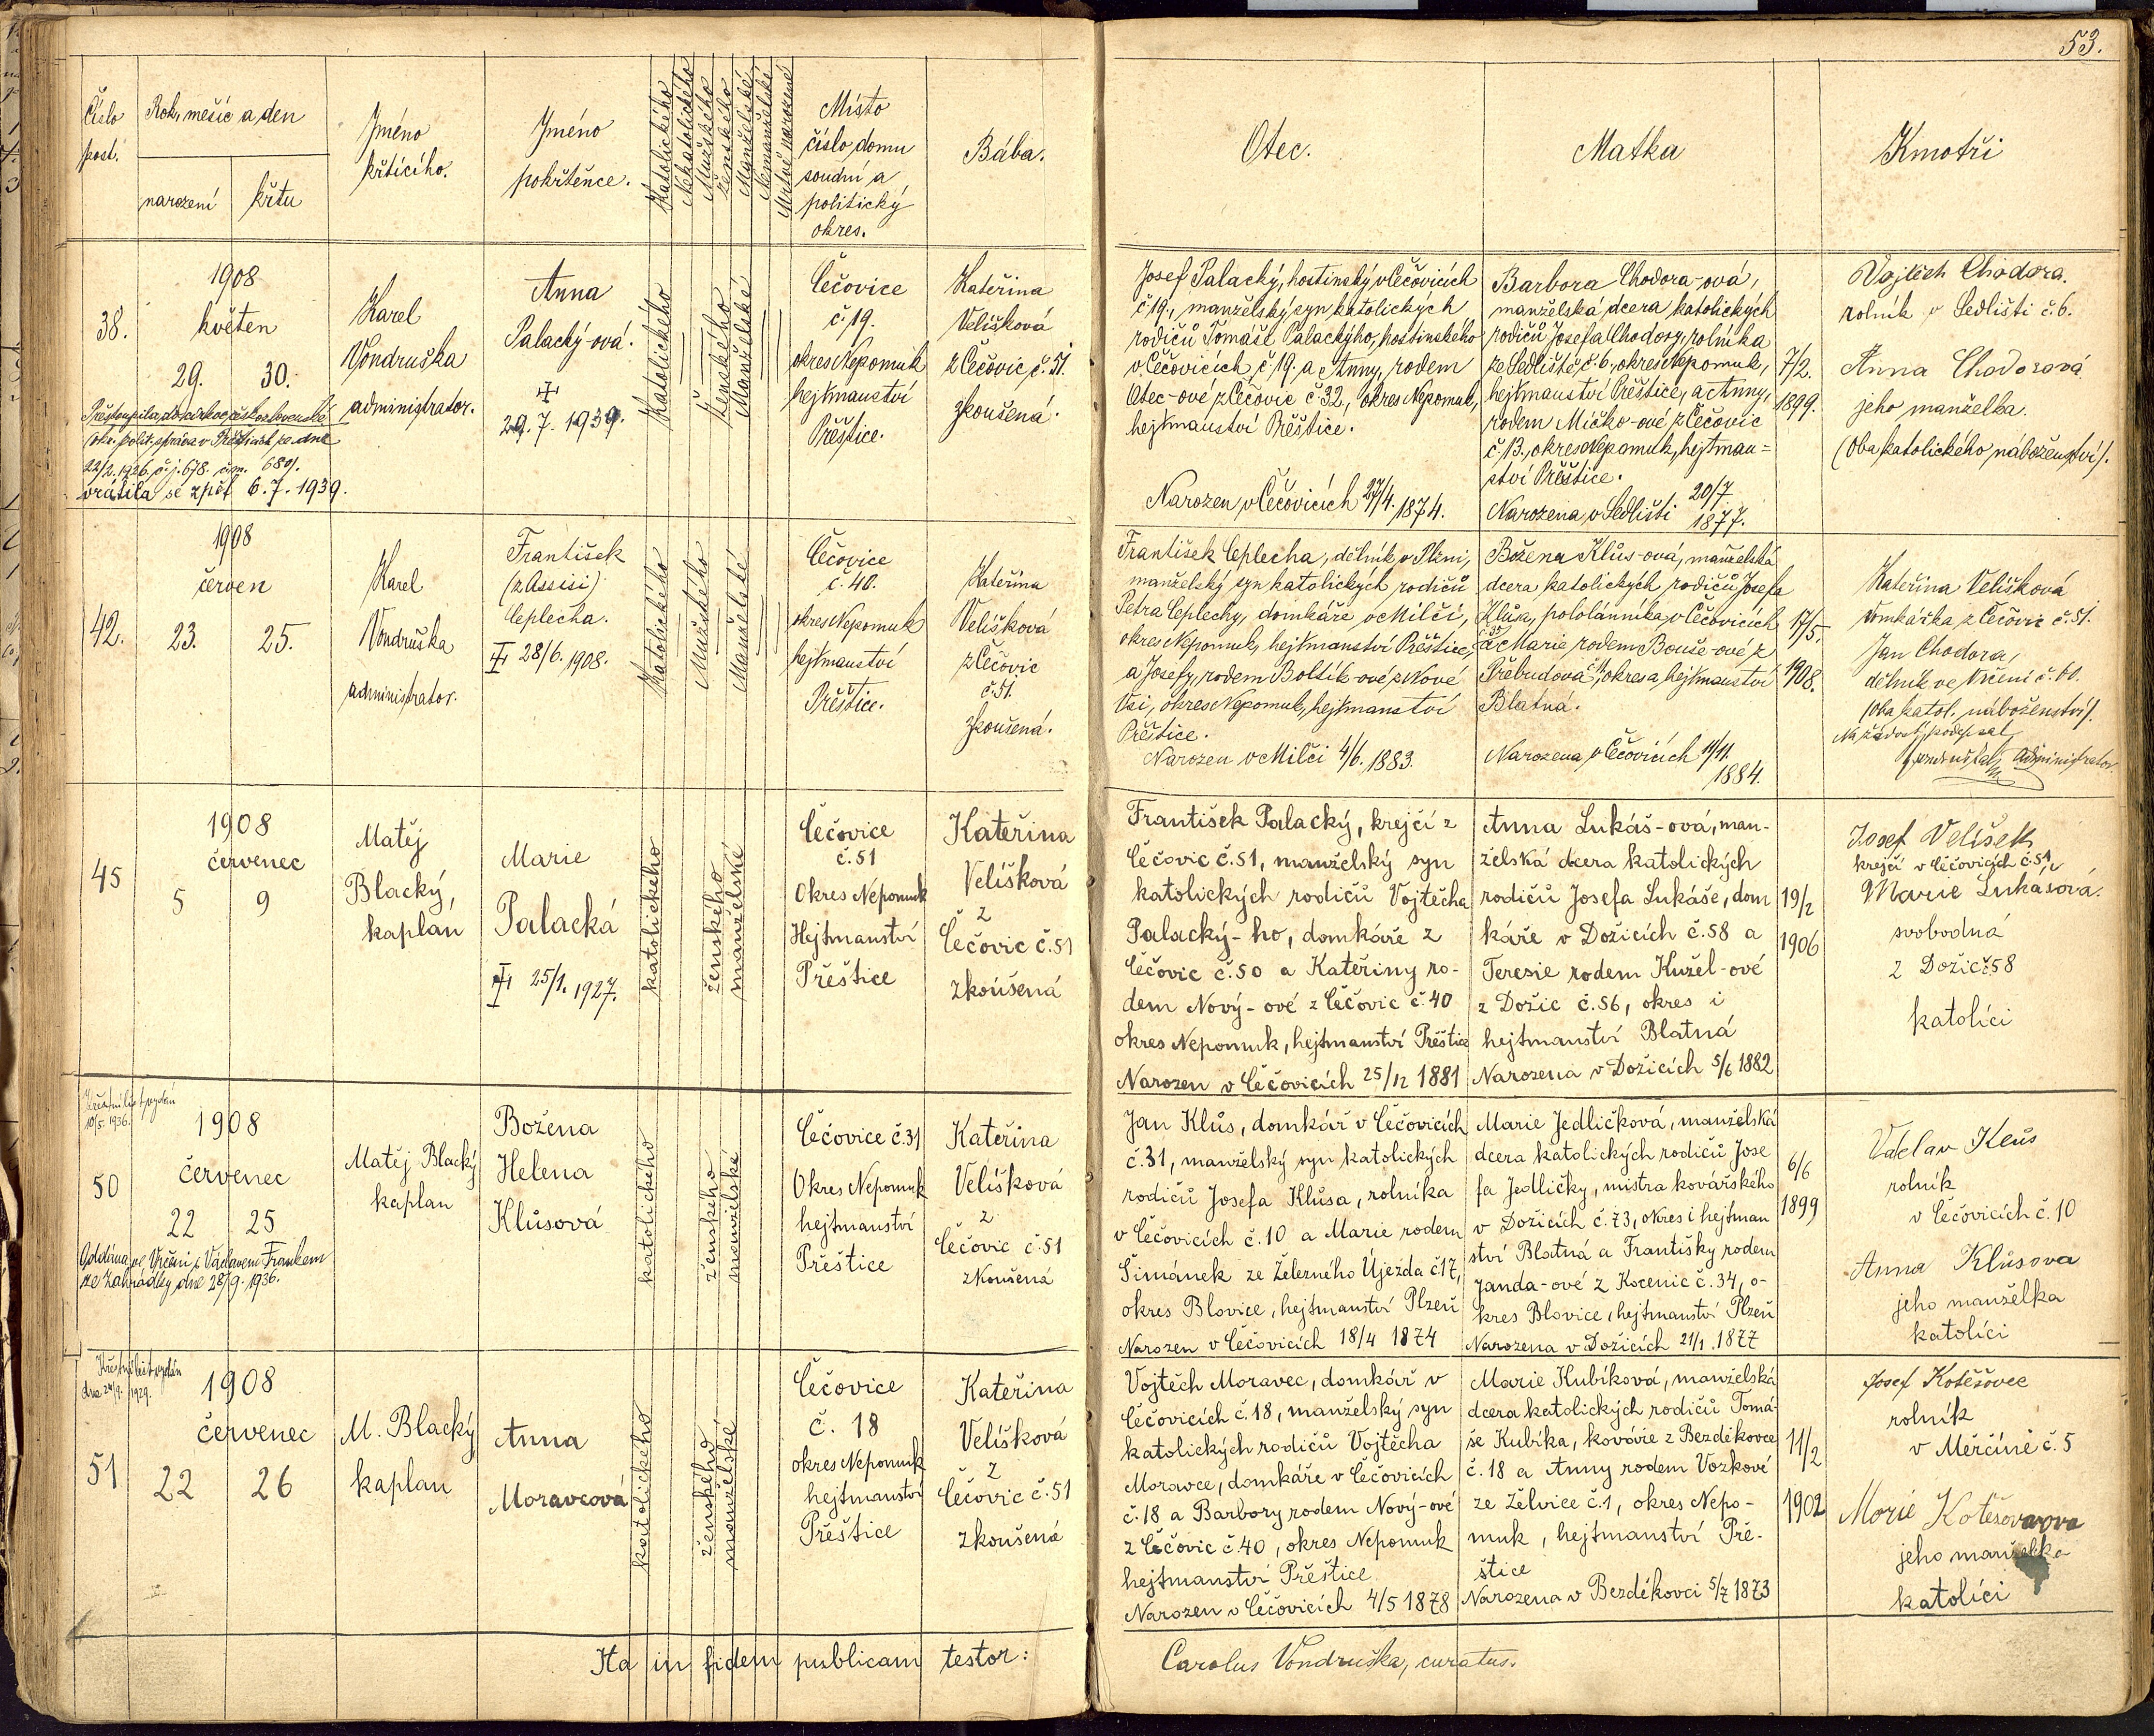 53.
Číslo post.
Rok, měsíc a den
narození
křtu
Jméno
křtícího.
Jméno
pokřtěnce.
Katolického
Nekatolického
Mužského
Ženského
Manželské
Nemanželské
Mrtvě narozené
Místo
číslo domu
soudní a
politický
okres.
Bába.
Otec.
Matka
Kmotři
38.
1908
květen
29. 30.
Přestoupila do církve československé
okr. polit. správa v Přešticích ze dne
22/2. 1926 č. j. 678.
vrátila se zpět 6. 7. 1939.
Karel
Vondruška
administrator.
Anna
Palacký-ová.
29. 7. 1939.
Katolického
Ženského
Manželské
Čečovice
č. 19.
okres Nepomuk
hejtmanství
Přeštice.
Kateřina
Velíšková
z Čečovic č. 51.
zkoušená.
Josef Palacký, hostinský v Čečovicích
č. 19., manželský syn katolických
rodičů Tomáše Palackýho, hostinského
v Čečovicích č. 19. a Anny, rodem
Otec-ové z Čečovic č. 32, okres Nepomuk,
hejtmanství Přeštice.
Narozen v Čečovicích 27/4. 1874.
Barbora Chodora-ová,
manželská dcera katolických
rodičů Josefa Chodory, rolníka
ze Sedliště č. 6, okres Nepomuk,
hejtmanství Přeštice, a Anny,
rodem Míčko-ové z Čečovic
č. 13., okres Nepomuk, hejtman=
ství Přeštice.
Narozena v Sedlišti 20/7 1877.
7/2.
1899.
Vojtěch Chodora.
rolník v Sedlišti č. 6.
Anna Chodorová
jeho manželka.
(Oba katolického náboženství).
42.
1908
červen
23. 25.
Karel
Vondruška
administrator.
František
(z Assisi)
Ceplecha.
28/6. 1908.
Katolického
Mužského
Manželské
Čečovice
č. 40.
okres Nepomuk
hejtmanství
Přeštice.
Kateřina
Velíšková
z Čečovic
č. 51.
zkoušená.
František Ceplecha, dělník v Plzni,
manželský syn katolických rodičů
Petra Ceplechy, domkáře v Milči,
okres Nepomuk, hejtmanství Přeštice,
a Josefy, rodem Boltík-ové z Nové
Vsi, okres Nepomuk, hejtmanství
Přeštice.
Narozen v Milči 4/6. 1883.
Božena Klůs-ová, manželská
dcera katolických rodičů Josefa
Klůsa, pololánníka v Čečovicích
a Marie rodem Bouše-ové z
Přebudova č. 11, okres a hejtmanství
Blatná.
Narozena v Čečovicích 11/11. 1884.
17/5.
1908.
Kateřina Velíšková
domkářka z Čečovic č. 51.
Jan Chodora,
dělník ve Vrčeni č. 60.
(Oba katol. náboženství).
Na žádost podepsal
Vondruška, administrator.
45
1908
červenec
5 9
Matěj
Blacký,
kaplán
Marie
Palacká
25/1. 1927.
katolického
ženského
manželské
Čečovice
č. 51
Okres Nepomuk
Hejtmanství
Přeštice
Kateřina
Velíšková
z
Čečovic č. 51
zkoušená
František Palacký, krejčí z
Čečovic č. 51, manželský syn
katolických rodičů Vojtěcha
Palacký-ho, domkáře z
Čečovic č. 50 a Kateřiny ro-
dem Nový-ové z Čečovic č. 40
okres Nepomuk, hejtmanství Přeštice
Narozen v Čečovicích 25/12 1881
Anna Lukáš-ová, man-
želská dcera katolických
rodičů Josefa Lukáše, dom
káře v Dožicích č. 58 a
Teresie rodem Kužel-ové
z Dožic č. 56, okres i
hejtmanství Blatná
Narozena v Dožicích 5/6 1882
19/2
1906
Josef Velíšek
krejčí v Čečovicích č. 51,
Marie Lukášová.
svobodná
z Dožic č. 58
katolíci
Křestní list vydán
10/5. 1936.
50
1908
červenec
22 25
Oddána ve Vrčeni s Václavem Frankem
ze Zahrádky dne 28/9. 1936.
Matěj Blacký
kaplan
Božena
Helena
Klůsová
katolického
ženského
manželské
Čečovice č. 31
Okres Nepomuk
hejtmanství
Přeštice
Kateřina
Velíšková
z
Čečovic č. 51
zkoušená
Jan Klůs, domkář v Čečovicích
č. 31, manželský syn katolických
rodičů Josefa Klůsa, rolníka
v Čečovicích č. 10 a Marie rodem
Šimánek ze Železného Újezda č. 17,
okres Blovice, hejtmanství Plzeň
Narozen v Čečovicích 18/4 1874
Marie Jedličková, manželská
dcera katolických rodičů Jose
fa Jedličky, mistra kovářského
v Dožicích č. 73, okres i hejtman
ství Blatná a Františky rodem
Janda-ové z Kocenic č. 34, o-
kres Blovice, hejtmanství Plzeň
Narozena v Dožicích 21/1. 1877
6/6
1899
Václav Klůs
rolník
v Čečovicích č. 10
Anna Klůsova
jeho manželka
katolíci
Křestní list vydán
dne 24/9. 1929.
51
1908
červenec
22 26
M. Blacký
kaplan
Anna
Moravcová
katolického
ženského
manželské
Čečovice
č. 18
okres Nepomuk
hejtmanství
Přeštice
Kateřina
Velíšková
z
Čečovic č. 51
zkoušená
Vojtěch Moravec, domkář v
Čečovicích č. 18, manželský syn
katolických rodičů Vojtěcha
Moravce, domkáře v Čečovicích
č. 18 a Barbory rodem Nový-ové
z Čečovic č. 40, okres Nepomuk
hejtmanství Přeštice
Narozen v Čečovicích 4/5 1878
Marie Kubíková, manželská
dcera katolických rodičů Tomá-
še Kubíka, kováře z Bezděkovce
č. 18 a Anny rodem Vozkové
ze Želvice č. 1, okres Nepo-
muk, hejtmanství Pře-
štice
Narozena v Bezděkovci 5/7 1873
11/2
1902
Josef Kotěšovec
rolník
v Měrčíně č. 5
Marie Kotěšovcova
jeho manželka
katolíci
Ita in fidem publicam testor:
Carolus Vondruška, curatus.